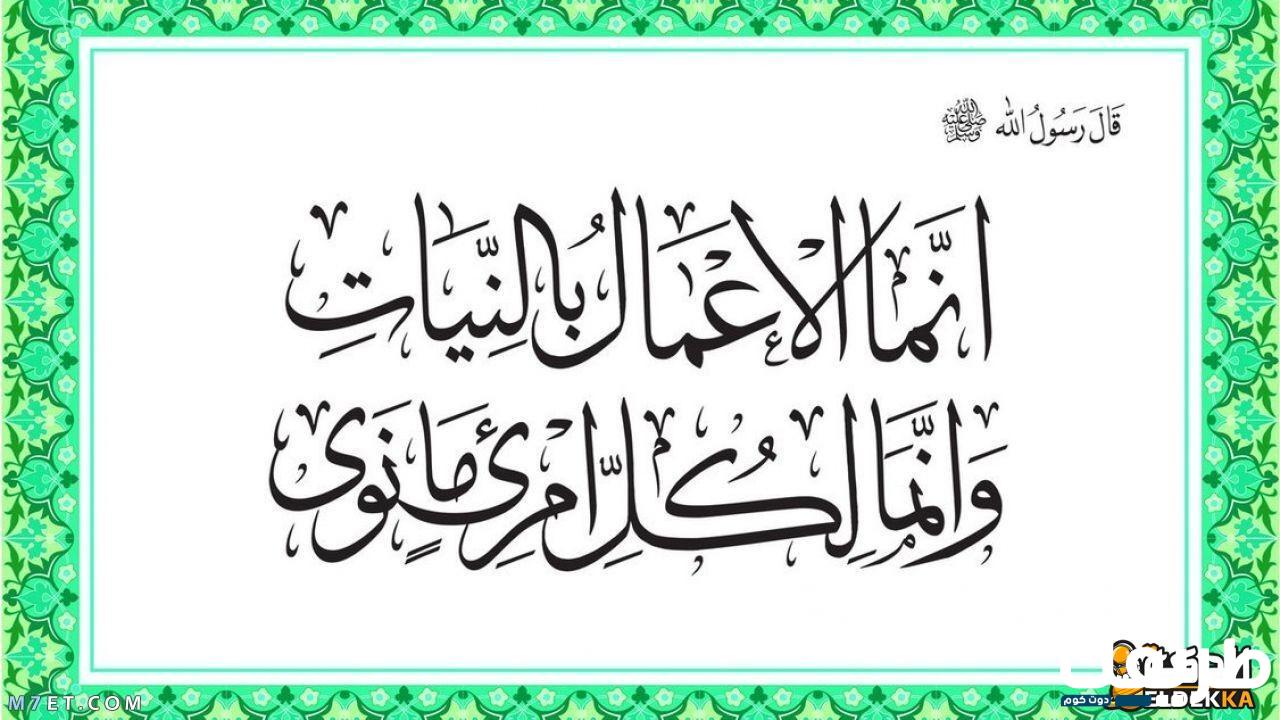 قَالَ رَسُولُ اللّٰه ﷺ
اِنَّمَا الْاَعْمَالُ بِالنِّيَّاتِ
وَاِنَّمَا لِكُلِّ امْرِئٍ مَا نَوٰى
M7ET.COM
دوت كوم
ELDEKKA